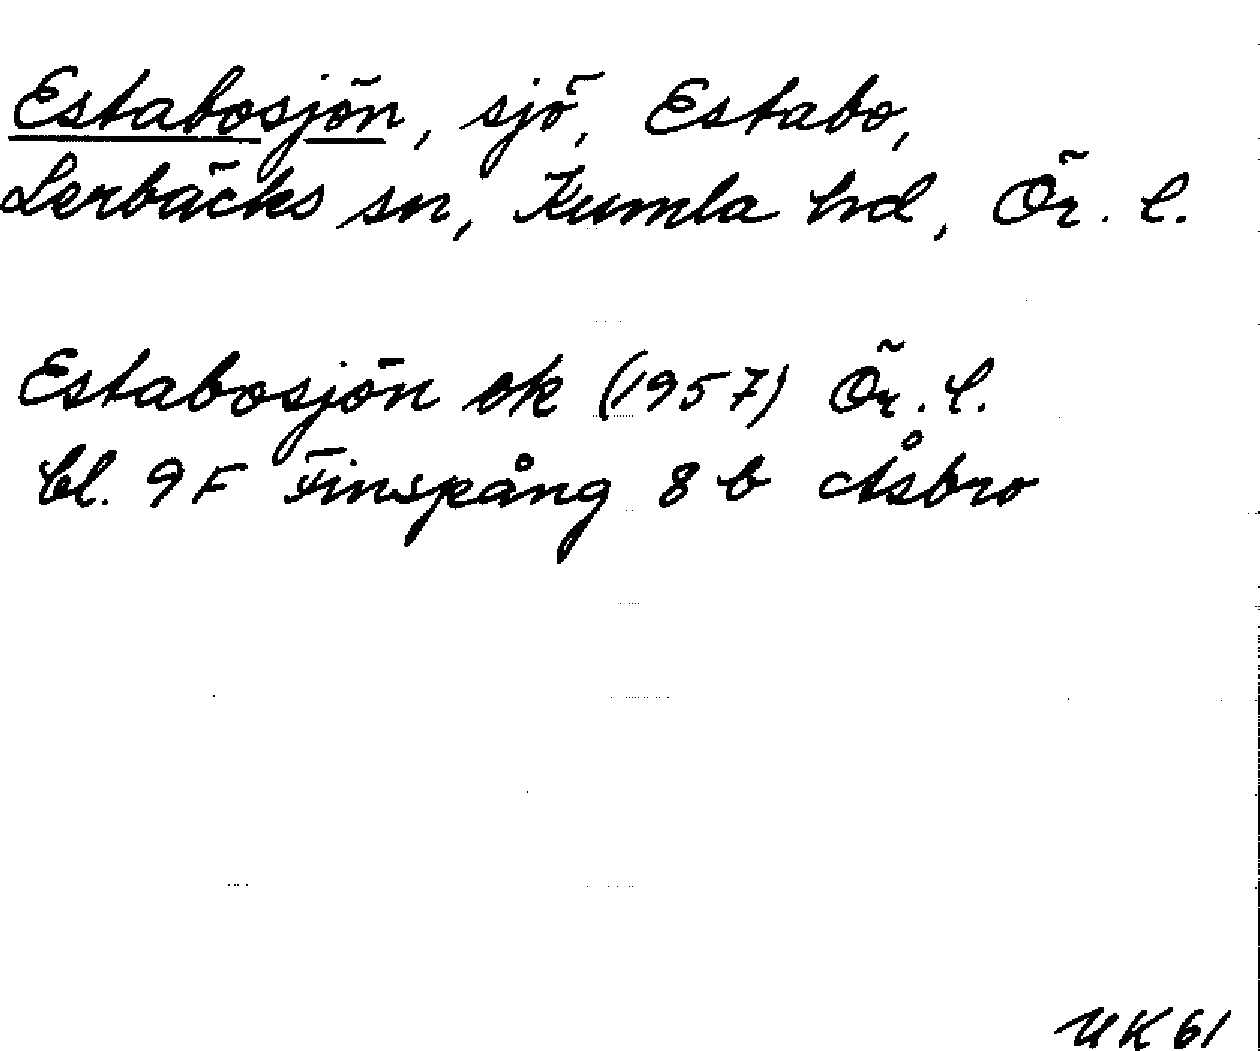 Estabosjön, sjö, Estabo,
Lerbäcks sn, Kumla hd, Ör. l.
Estabosjön ek (1957) Ör. l.
bl. 9 F Finspång 8 b Åsbro
UK 61